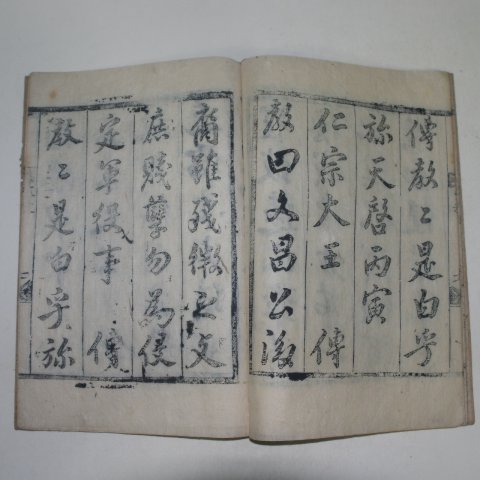 傳敎〻是白乎
旀天啓丙寅
仁宗大王 傳
敎曰文昌公後
裔雖殘微之文
庶賤孼勿爲侵
定軍役事 傳
敎〻是白乎旀